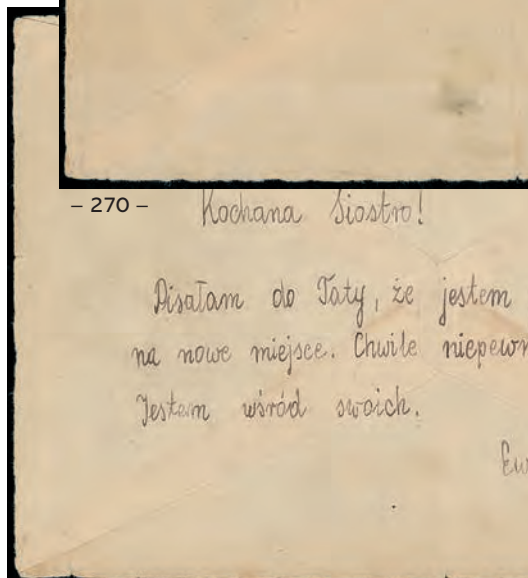 – 270 –
Kochana Siostro!
Pisałam do Taty, że jestem
na nowe miejsce. Chwile niepewn
Jestem wśród swoich.
Ew